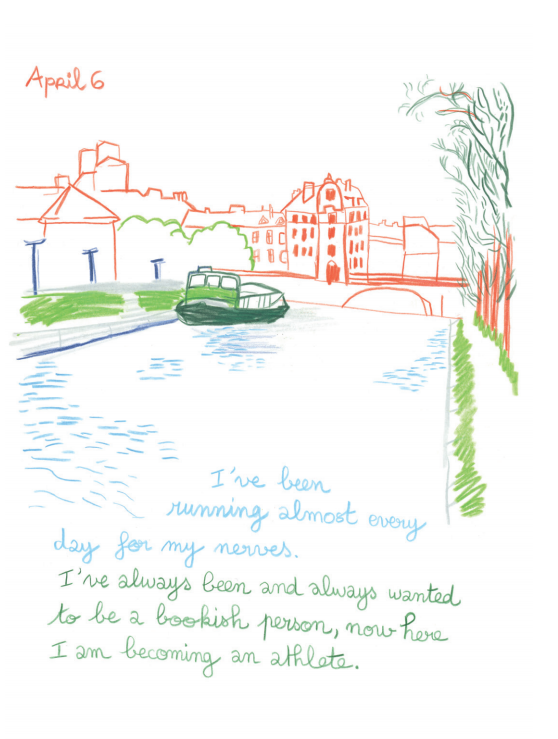 April 6
I've been
running almost every
day for my nerves.
I've always been and always wanted
to be a bookish person, now here
I am becoming an athlete.